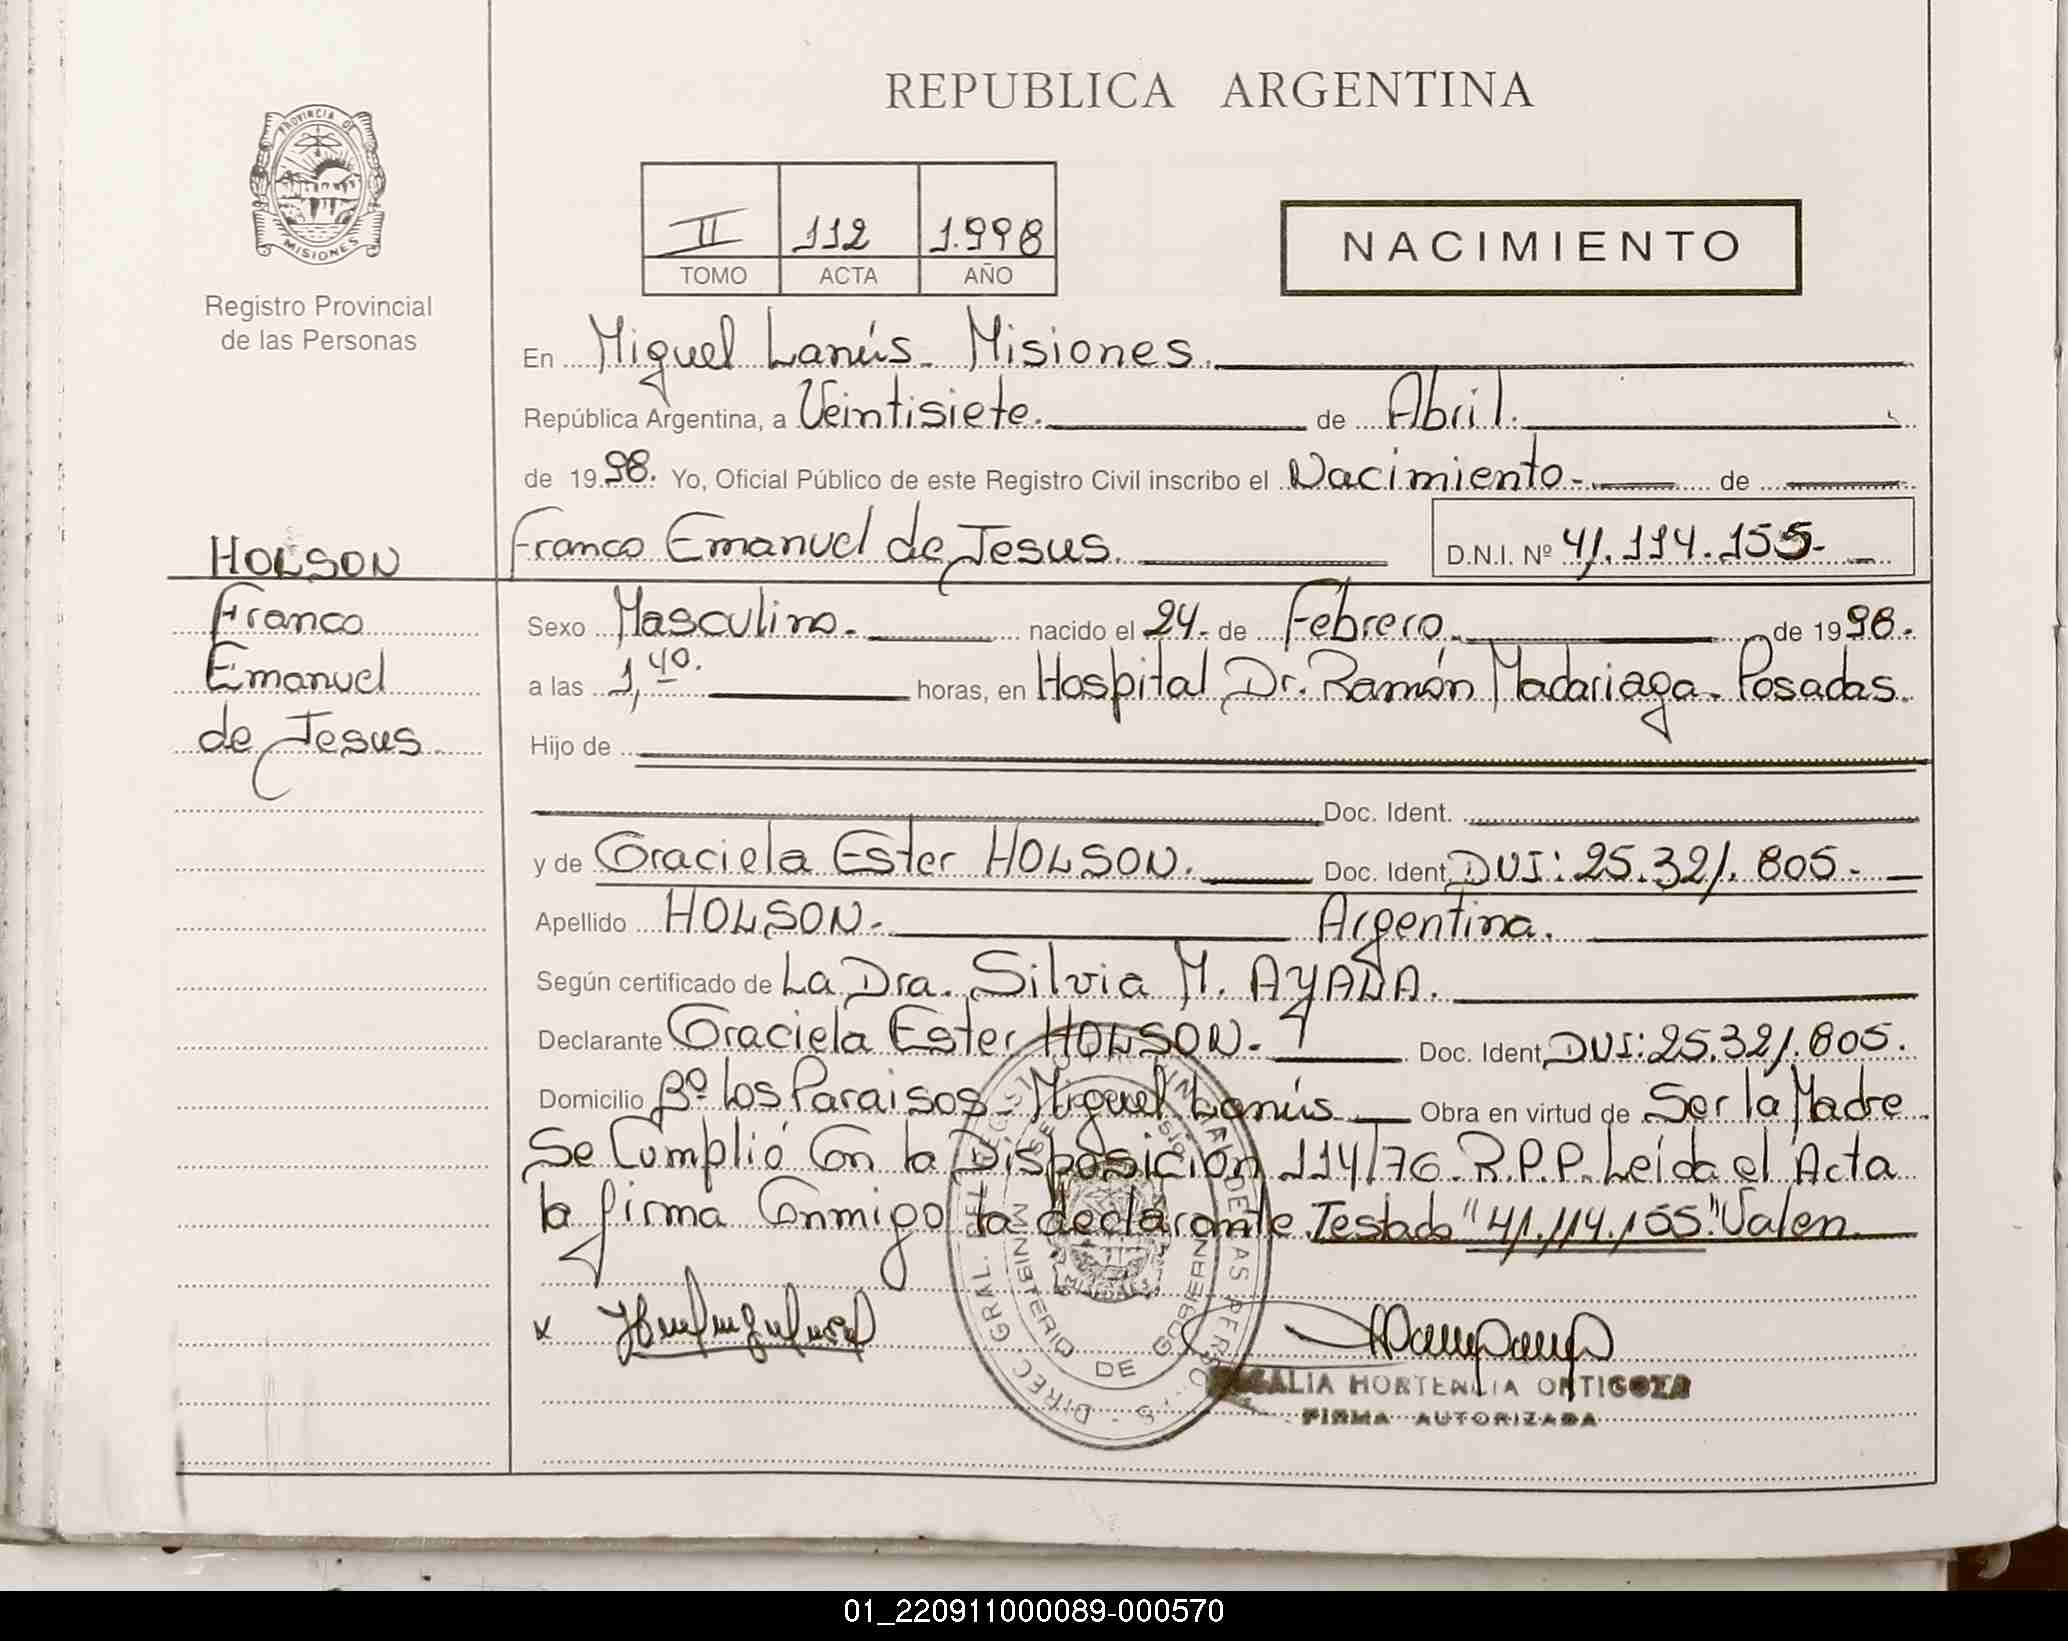 REPUBLICA ARGENTINA
PROVINCIA DE
MISIONES
Registro Provincial
de las Personas
II 112 1.998
TOMO ACTA AÑO
NACIMIENTO
En Miguel Lanús - Misiones.
República Argentina, a Veintisiete. de Abril.
de 1998. Yo, Oficial Público de este Registro Civil inscribo el Nacimiento - de
Franco Emanuel de Jesus. D.N.I. Nº 41.114.155-
HOLSON
Franco
Emanuel
de Jesus
Sexo Masculino. nacido el 24. de Febrero. de 1998.
a las 1,40. horas, en Hospital Dr. Ramón Madariaga - Posadas.
Hijo de
Doc. Ident.
y de Graciela Ester HOLSON. Doc. Ident. DNI: 25.321.805.-
Apellido HOLSON. Argentina.
Según certificado de La Dra. Silvia M. AYALA.
Declarante Graciela Ester HOLSON. Doc. Ident. DNI: 25.321.805.
Domicilio Bº Los Paraisos - Miguel Lanús Obra en virtud de Ser la Madre
Se Cumplió Con la Disposición 114/76. R.P.P. Leída el Acta
la firma Conmigo la declarante. Testado "41.114.155". Valen.
MINISTERIO DE GOBIERNO
x
HORTENCIA ORTIGOZA
FIRMA AUTORIZADA
01_220911000089-000570